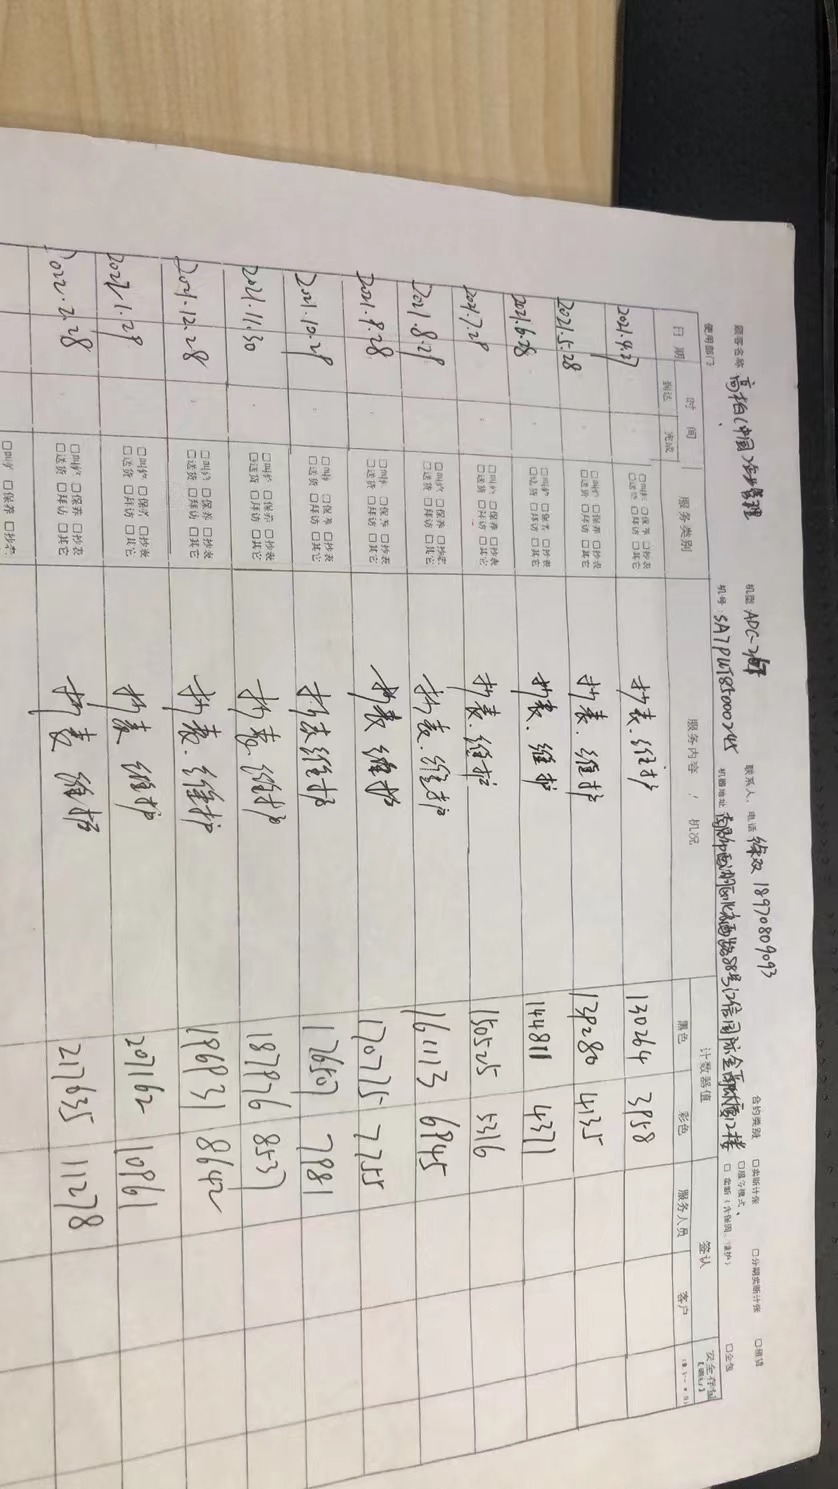 顾客名称 高柏(中国)企业管理 机型 ADC- 联系人、电话 徐双 18970809093 合约类别 □卖断计张 □分期卖断计张 □租赁
使用部门 机号 SA7PWT85000245 机器地址 88号 国际金 12楼 □服务模式、 □卖断(含保固、维护) □全包
日期 时间 服务类别 服务内容 / 机况 计数器值 签认
到达 完成 黑色 彩色 服务人员 客户
2021.4.27 □叫修 □保养 □抄表 抄表.维护 130264 3958
□送货 □拜访 □其它
2021.5.28 □叫修 □保养 □抄表 抄表.维护 139280 4135
□送货 □拜访 □其它
2021.6.28 □叫修 □保养 □抄表 抄表.维护 144811 4371
□送货 □拜访 □其它
2021.7.28 □叫修 □保养 □抄表 抄表.维护 150525 5316
□送货 □拜访 □其它
2021.8.28 □叫修 □保养 □抄表 抄表.维护 161113 6945
□送货 □拜访 □其它
2021.9.28 □叫修 □保养 □抄表 抄表 维护 170775 7755
□送货 □拜访 □其它
2021.10.28 □叫修 □保养 □抄表 抄表维护 176507 7981
□送货 □拜访 □其它
2021.11.30 □叫修 □保养 □抄表 抄表.维护 187876 8537
□送货 □拜访 □其它
2021.12.28 □叫修 □保养 □抄表 抄表.维护 196931 8642
□送货 □拜访 □其它
2022.1.28 □叫修 □保养 □抄表 抄表 维护 207162 10961
□送货 □拜访 □其它
2022.2.28 □叫修 □保养 □抄表 抄表 维护 217635 11278
□送货 □拜访 □其它
□叫修 □保养 □抄表